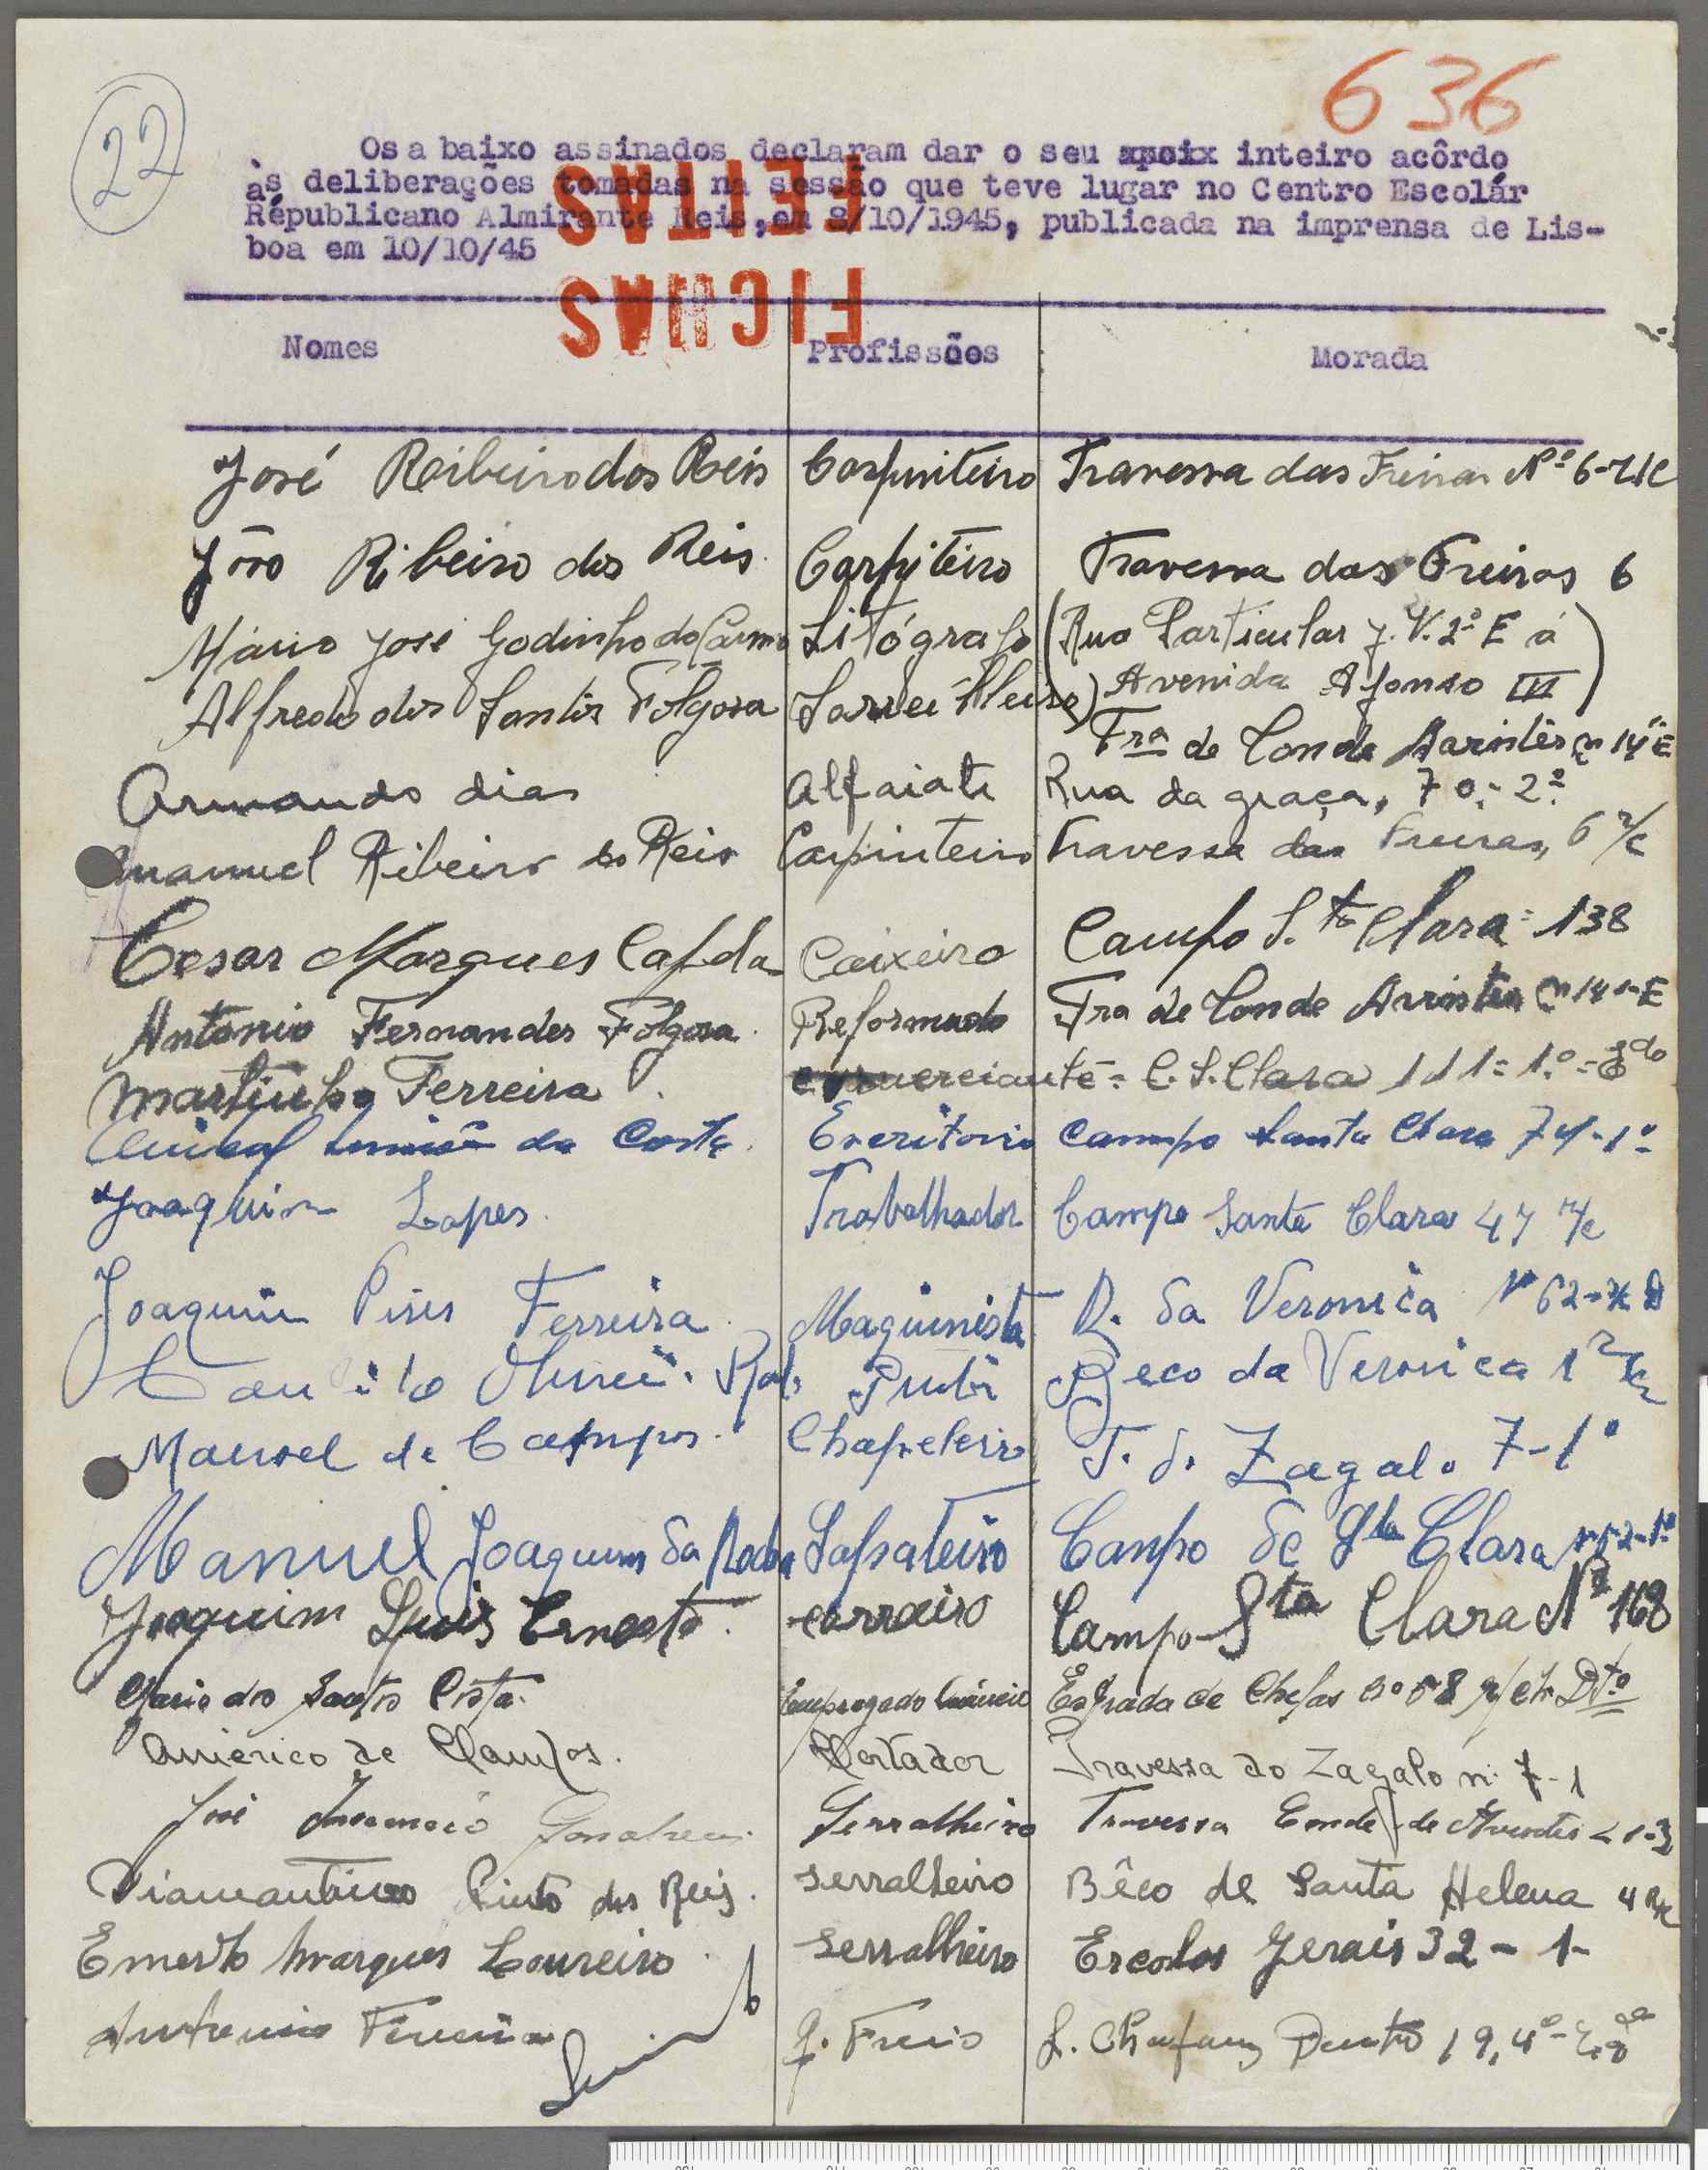 22
636
Os a baixo assinados declaram dar o seu inteiro acôrdo
às deliberações tomadas na sessão que teve lugar no Centro Escolár
Républicano Almirante Reis, em 8/10/1945, publicada na imprensa de Lis-
boa em 10/10/45
FICHAS
FEITAS
Nomes Profissões Morada
José Ribeiro dos Reis Carpinteiro Travessa das Freiras Nº 6-r/c
João Ribeiro dos Reis Carpiteiro Travessa das Freiras 6
Mário José Godinho do Carmo Litógrafo (Rua Particular J. V. 2º E á
Avenida Afonso III)
Alfredo dos Santos Folgosa Tra de Conde Avintes n 14 E
Armando dias Alfaiate Rua da graça, 70-2º
Manuel Ribeiro do Reis Carpinteiro Travessa das Freiras, 6 r/c
Cesar Marques Caixeiro Campo S.ta Clara 138
Antonio Fernandes Folgosa Reformado Tra de Conde Avintes n 14 1- E
Martinho Ferreira comerciante - C. S. Clara 111-1º-Edo
da Costa Escritorio Campo Santa Clara 74-1º
Joaquim Lopes Trabalhador Campo Santa Clara 47 r/c
Joaquim Pires Ferreira Maquinista R. da Veronica Nº 62-r/c D
Pintor Beco da Veronica 1 r/c
Manoel de Campos Chapeleiro T. do Zagalo 7-1º
Manuel Joaquim da Rocha Sapateiro Campo de Sta Clara nº 52-1º
Joaquim Luis Ernesto carroeiro Campo Sta Clara Nº 168
Mario dos Santos Costa Empregado Comércio Estrada de Chelas nº 58 r/ch Dto
Américo de Campos. Cortador Travessa do Zagalo n: 7-1
José Gonçalves Serralheiro Travessa Conde de Avintes 1-3
Diamantino Pinto dos Reis. Serralheiro Bêco de Santa Helena 4 R/c
Ernesto Marques Loureiro Serralheiro Escolas Gerais 32-1-
Antonio Ferreira L. Chafariz Dentro 19, 4º-